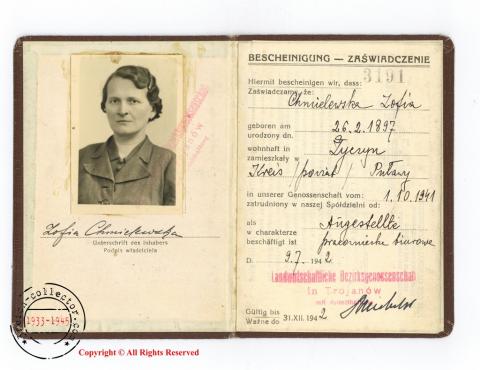 Zofia Chmielewska
Unterschrift des Inhabers
Podpis właściciela
BESCHEINIGUNG — ZAŚWIADCZENIE
Hiermit bescheinigen wir, dass:
3191
Zaświadczamy że:
Chmielewska Zofia
geboren am
urodzony dn.
26.2.1897
wohnhaft in
zamieszkały w
Życzyn
Kreis / powiat / Puławy
in unserer Genossenschaft vom:
zatrudniony w naszej Spółdzielni od:
1.10.1941
als
w charakterze
Angestellte
beschäftigt ist
pracownicka biurowa
D. 9.7. 1942
Landwirtschaftliche Bezirksgenossenschaft
in Trojanów
Gültig bis
Ważne do 31.XII.1942
collector.com
1933-1945
Copyright © All Rights Reserved